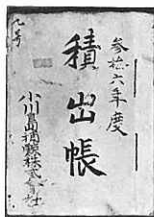 参拾六年度
積出帳
小川島捕鯨株式会社
九号